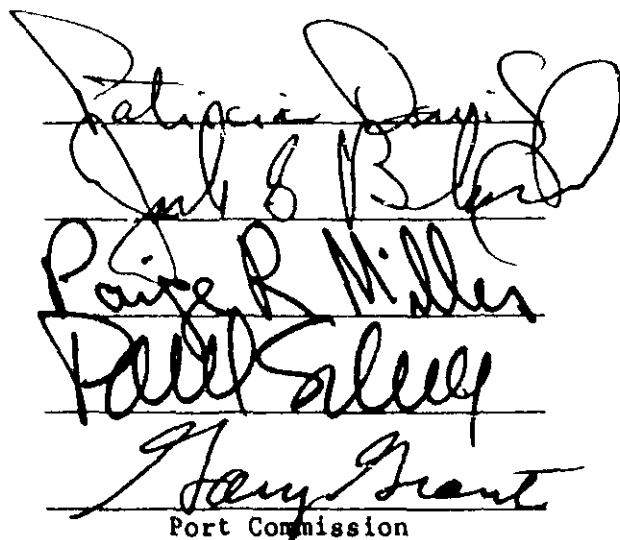 Patricia Davis
Jack S Block
Paige R Miller
Paul Schell
Gary Grant
Port Commission